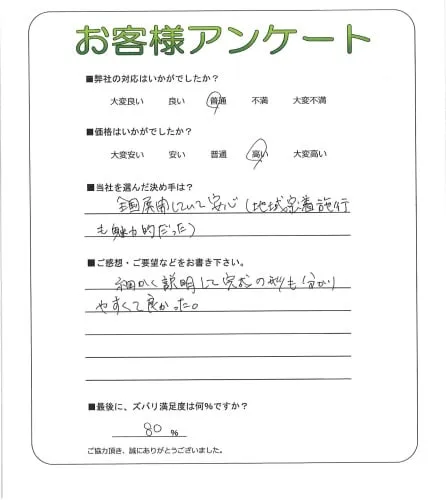 お客様アンケート
■弊社の対応はいかがでしたか？
大変良い 良い 普通 不満 大変不満
■価格はいかがでしたか？
大変安い 安い 普通 高い 大変高い
■当社を選んだ決め手は？
全国展開していて安心（地域密着施行
も魅力的だった）
■ご感想・ご要望などをお書き下さい。
細かく説明して実際の形も分かり
やすくて良かった。
■最後に、ズバリ満足度は何%ですか？
80 %
ご協力頂き、誠にありがとうございました。